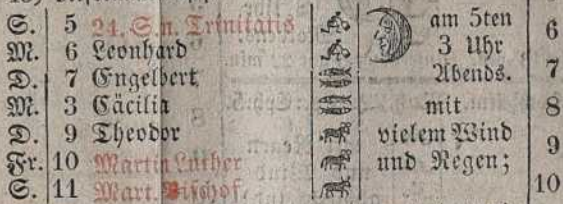 S. 5 24. S. n. Trinitatis am 5ten 6
M. 6 Leonhard 3 Uhr
D. 7 Engelbert Abends. 7
M. 3 Cäcilia mit 8
D. 9 Theodor vielem Wind 9
Fr. 10 Martin Luther und Regen;
S. 11 Mart. Bischof. 10